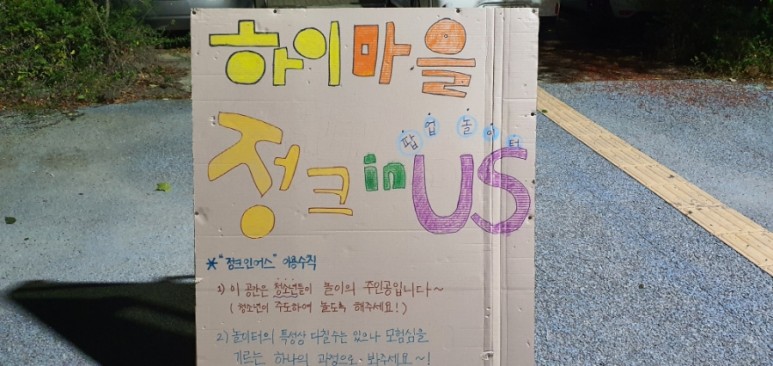 하이마을
팝업놀이터
정크 in US
* "정크인어스" 이용수칙
1) 이 공간은 청소년들이 놀이의 주인공입니다~
( 청소년이 주도하여 놀도록 해주세요!)
2) 놀이터의 특성상 다칠수는 있으나 모험심을
기르는 하나의 과정으로 봐주세요~!